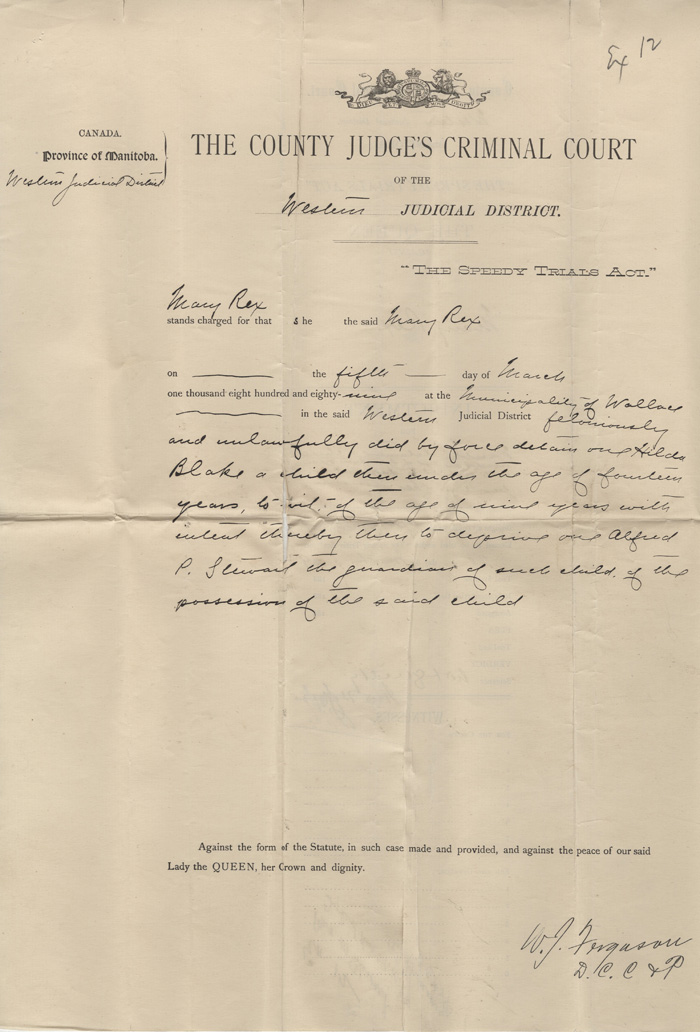 Ex 12
CANADA.
Province of Manitoba.
Western Judicial District
THE COUNTY JUDGE'S CRIMINAL COURT
OF THE
Western JUDICIAL DISTRICT.
"THE SPEEDY TRIALS ACT."
Mary Rex
stands charged for that s he the said Mary Rex
on the fifth day of March
one thousand eight hundred and eighty-nine at the Municipality of Wallace
in the said Western Judicial District feloniously
and unlawfully did by force detain one Hilda
Blake a child then under the age of fourteen
years, to wit: of the age of nine years with
intent thereby then to deprive one Alfred
P. Stewart the guardian of such child, of the
possession of the said child
Against the form of the Statute, in such case made and provided, and against the peace of our said
Lady the QUEEN, her Crown and dignity.
W. J. Ferguson
D. C. C & P